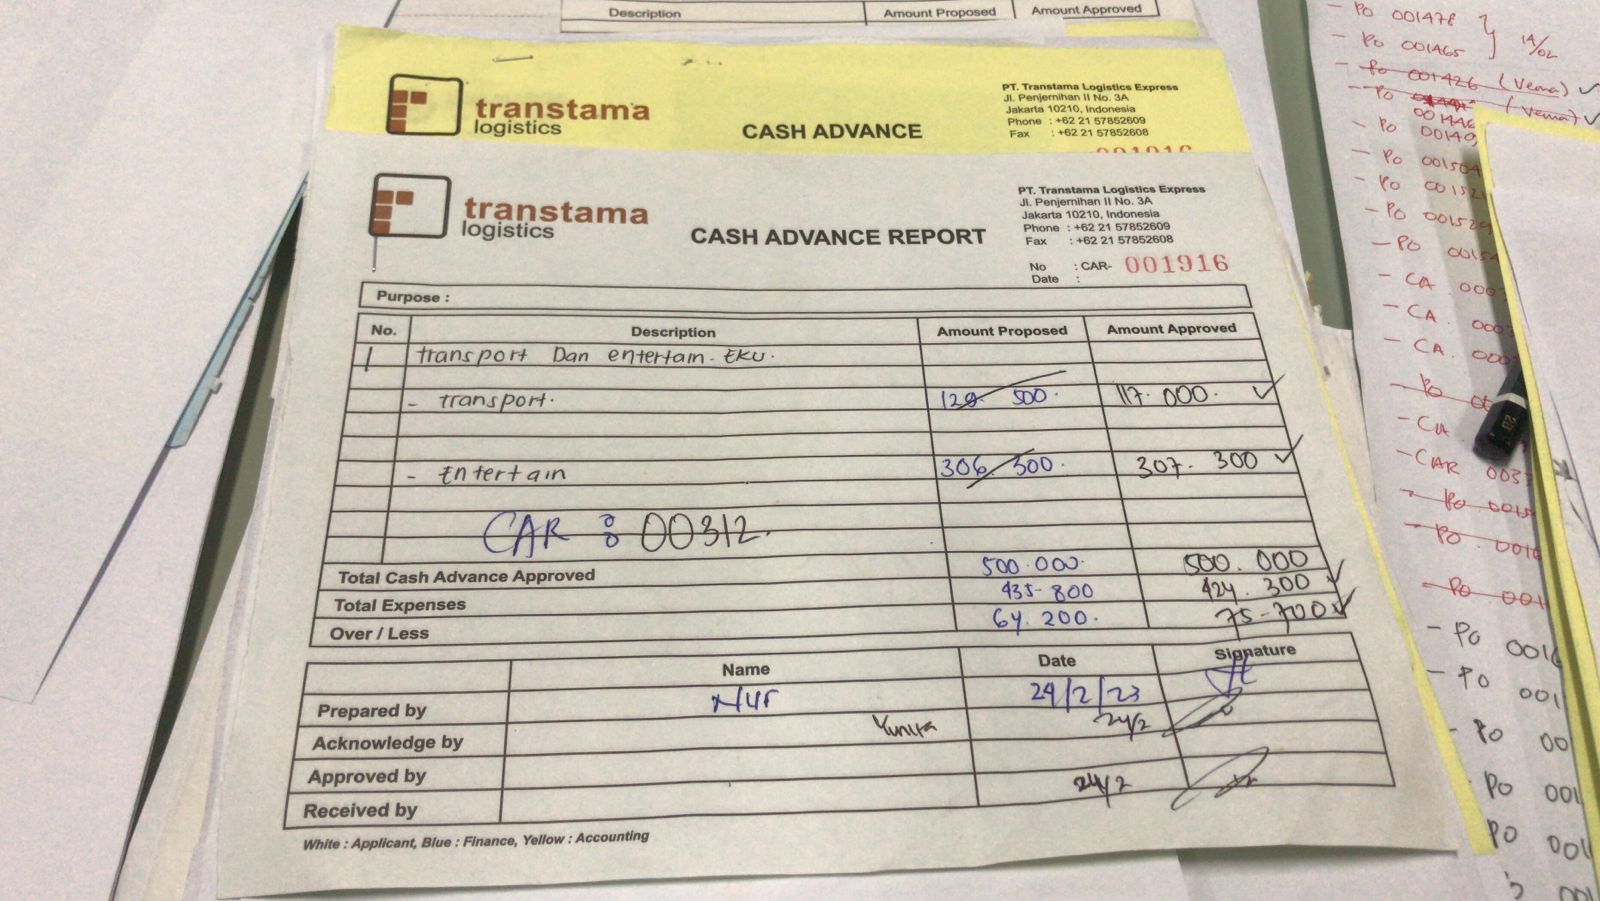 Description Amount Proposed Amount Approved
transtama
logistics
CASH ADVANCE
PT. Transtama Logistics Express
Jl. Penjernihan II No. 3A
Jakarta 10210, Indonesia
Phone : +62 21 57852609
Fax : +62 21 57852608
001916
transtama
logistics
CASH ADVANCE REPORT
PT. Transtama Logistics Express
Jl. Penjernihan II No. 3A
Jakarta 10210, Indonesia
Phone : +62 21 57852609
Fax : +62 21 57852608
No : CAR- 001916
Date :
Purpose :
No. Description Amount Proposed Amount Approved
1 transport Dan entertain. EKU.
- transport. 129. 500. 117. 000.
- Entertain 306. 300. 307. 300
CAR : 00312.
Total Cash Advance Approved 500.000. 500. 000
Total Expenses 435-800 424. 300
Over / Less 64. 200. 75-700
Name Date Signature
Prepared by Nur 24/2/23
Acknowledge by Yunita 24/2
Approved by 24/2
Received by
White : Applicant, Blue : Finance, Yellow : Accounting
- PO 001478
- PO 001465 } 14/02
- PO 001426 (Vema)
- PO (Vema)
- PO
- PO
- PO
- PO
- PO
- CA
- CA.
- CA.
- PO
- CA
- CAR
- PO
- PO.
- PO.
- PO
- PO
- PO
- PO
PO